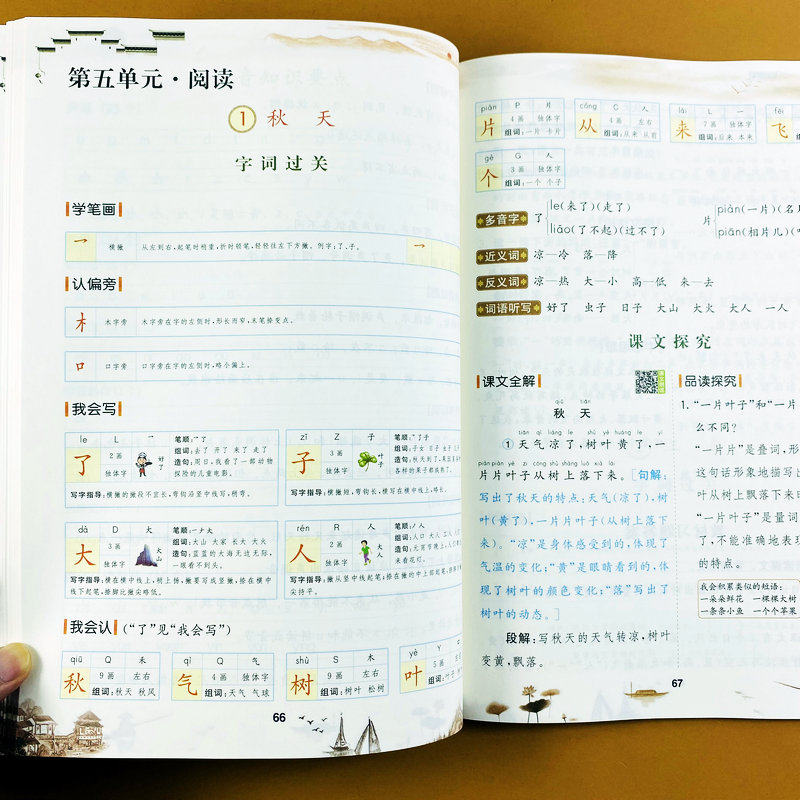 第五单元·阅读
1 秋 天
字词过关
学笔画
横撇 从左到右,起笔时稍重,折时顿笔,轻轻往左下方撇。例字:了、子。
认偏旁
木 木字旁 木字旁在字的左侧时,形长而窄,末笔捺变点。
口 口字旁 口字旁在字的左侧时,略小偏上。
我会写
le L
了 2画 独体字 好了
笔顺:了
组词:去了 开了 来了 走了
造句:周日,我看了一部动物探险的儿童电影。
写字指导:横撇的撇段不宜长,弯钩沿竖中线写,稍弯。
zǐ Z 子
子 3画 独体字 叶子
笔顺:了子
组词:子女 日子 虫子
造句:秋天到了,果园
各样的果子都熟了。
写字指导:横撇短,弯钩长,横写在横中线上,略长。
dà D 大
大 3画 独体字 大山
笔顺:一ナ大
组词:大山 大家 长大 大火
造句:蓝蓝的大海无边无际,一眼看不到头。
写字指导:横在横中线上,稍上扬,撇要写成竖撇,捺在横中线下起笔,捺脚比撇尖略低。
rén R 人
人 2画 独体字 大人
笔顺:丿人
组词:人口 大人 工人
造句:元宵节晚上,
来看花灯。
写字指导:撇从竖中线起笔;捺在撇的中上部起笔,捺脚
尖持平。
我会认(“了”见“我会写”)
qiū Q 禾
秋 9画 左右
组词:秋天 秋风
qì Q 气
气 4画 独体字
组词:天气 气球
shù S 木
树 9画 左右
组词:树叶 松树
yè Y
叶 5画 左右
组词:叶子
66
piàn P 片
片 4画 独体字
组词:一片 卡片
cóng C 人
从 4画 左右
组词:从来 从前
lái L 一
来 7画 独体字
组词:后来 本来
fēi
飞
gè G 人
个 3画 独体字
组词:一个 个子
多音字 了 le(来了)(走了) liǎo(了不起)(过不了) 片 piàn(一片)(名 piān(相片儿)(
近义词 凉—冷 落—降
反义词 凉—热 大—小 高—低 来—去
词语听写 好了 虫子 日子 大山 大火 大人 一人
课文探究
课文全解
qiū tiān
秋 天
tiān qì liáng le shù yè huáng le yí
①天气凉了,树叶黄了,一
piàn piàn yè zi cóng shù shàng luò xià lái
片片叶子从树上落下来。[句解:
写出了秋天的特点:天气(凉了),树
叶(黄了),一片片叶子(从树上落下
来)。“凉”是身体感受到的,体现了
气温的变化;“黄”是眼睛看到的,体
现了树叶的颜色变化;“落”写出了
树叶的动态。]
段解:写秋天的天气转凉,树叶
变黄,飘落。
品读探究
1.“一片叶子”和“一片
么不同?
“一片片”是叠词,形
这句话形象地描写
叶从树上飘落下来
“一片叶子”是量词
了,不能准确地表现
的特点。
我会积累类似的短语:
一朵朵鲜花 一棵棵大树
一条条小鱼 一个个苹果
67